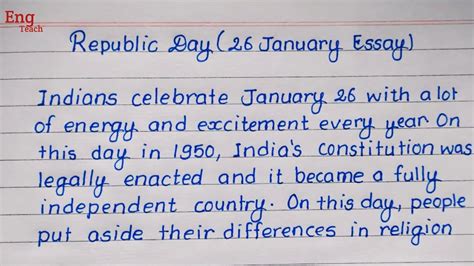 Eng
Teach
Republic Day (26 January Essay)
Indians celebrate January 26 with a lot
of energy and excitement every year On
this day in 1950, India's constitution was
legally enacted and it became a fully
independent country. On this day, people
put aside their differences in religion